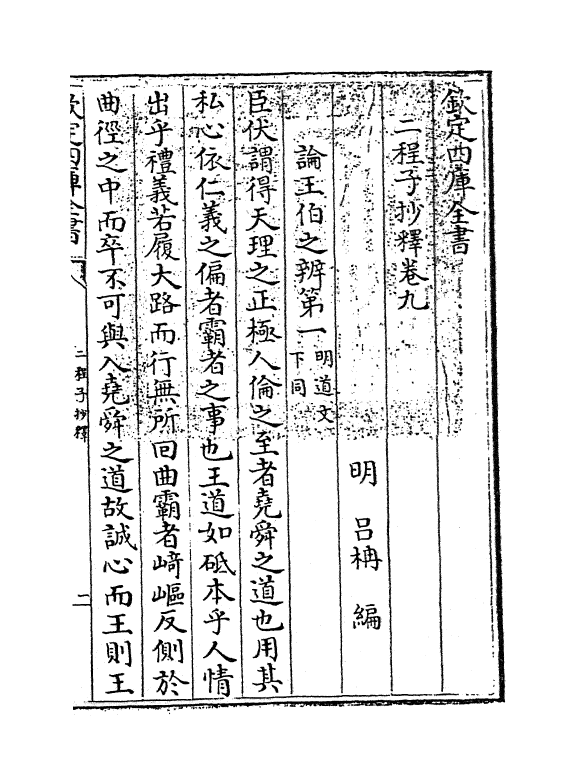 欽定四庫全書
二程子抄釋卷九
明 呂柟 編
論王伯之辨第一 明道文下同
臣伏謂得天理之正極人倫之至者堯舜之道也用其
私心依仁義之偏者霸者之事也王道如砥本乎人情
出乎禮義若履大路而行無所回曲霸者﨑嶇反側於
曲徑之中而卒不可與入堯舜之道故誠心而王則王
欽定四庫全書
二程子抄釋
二